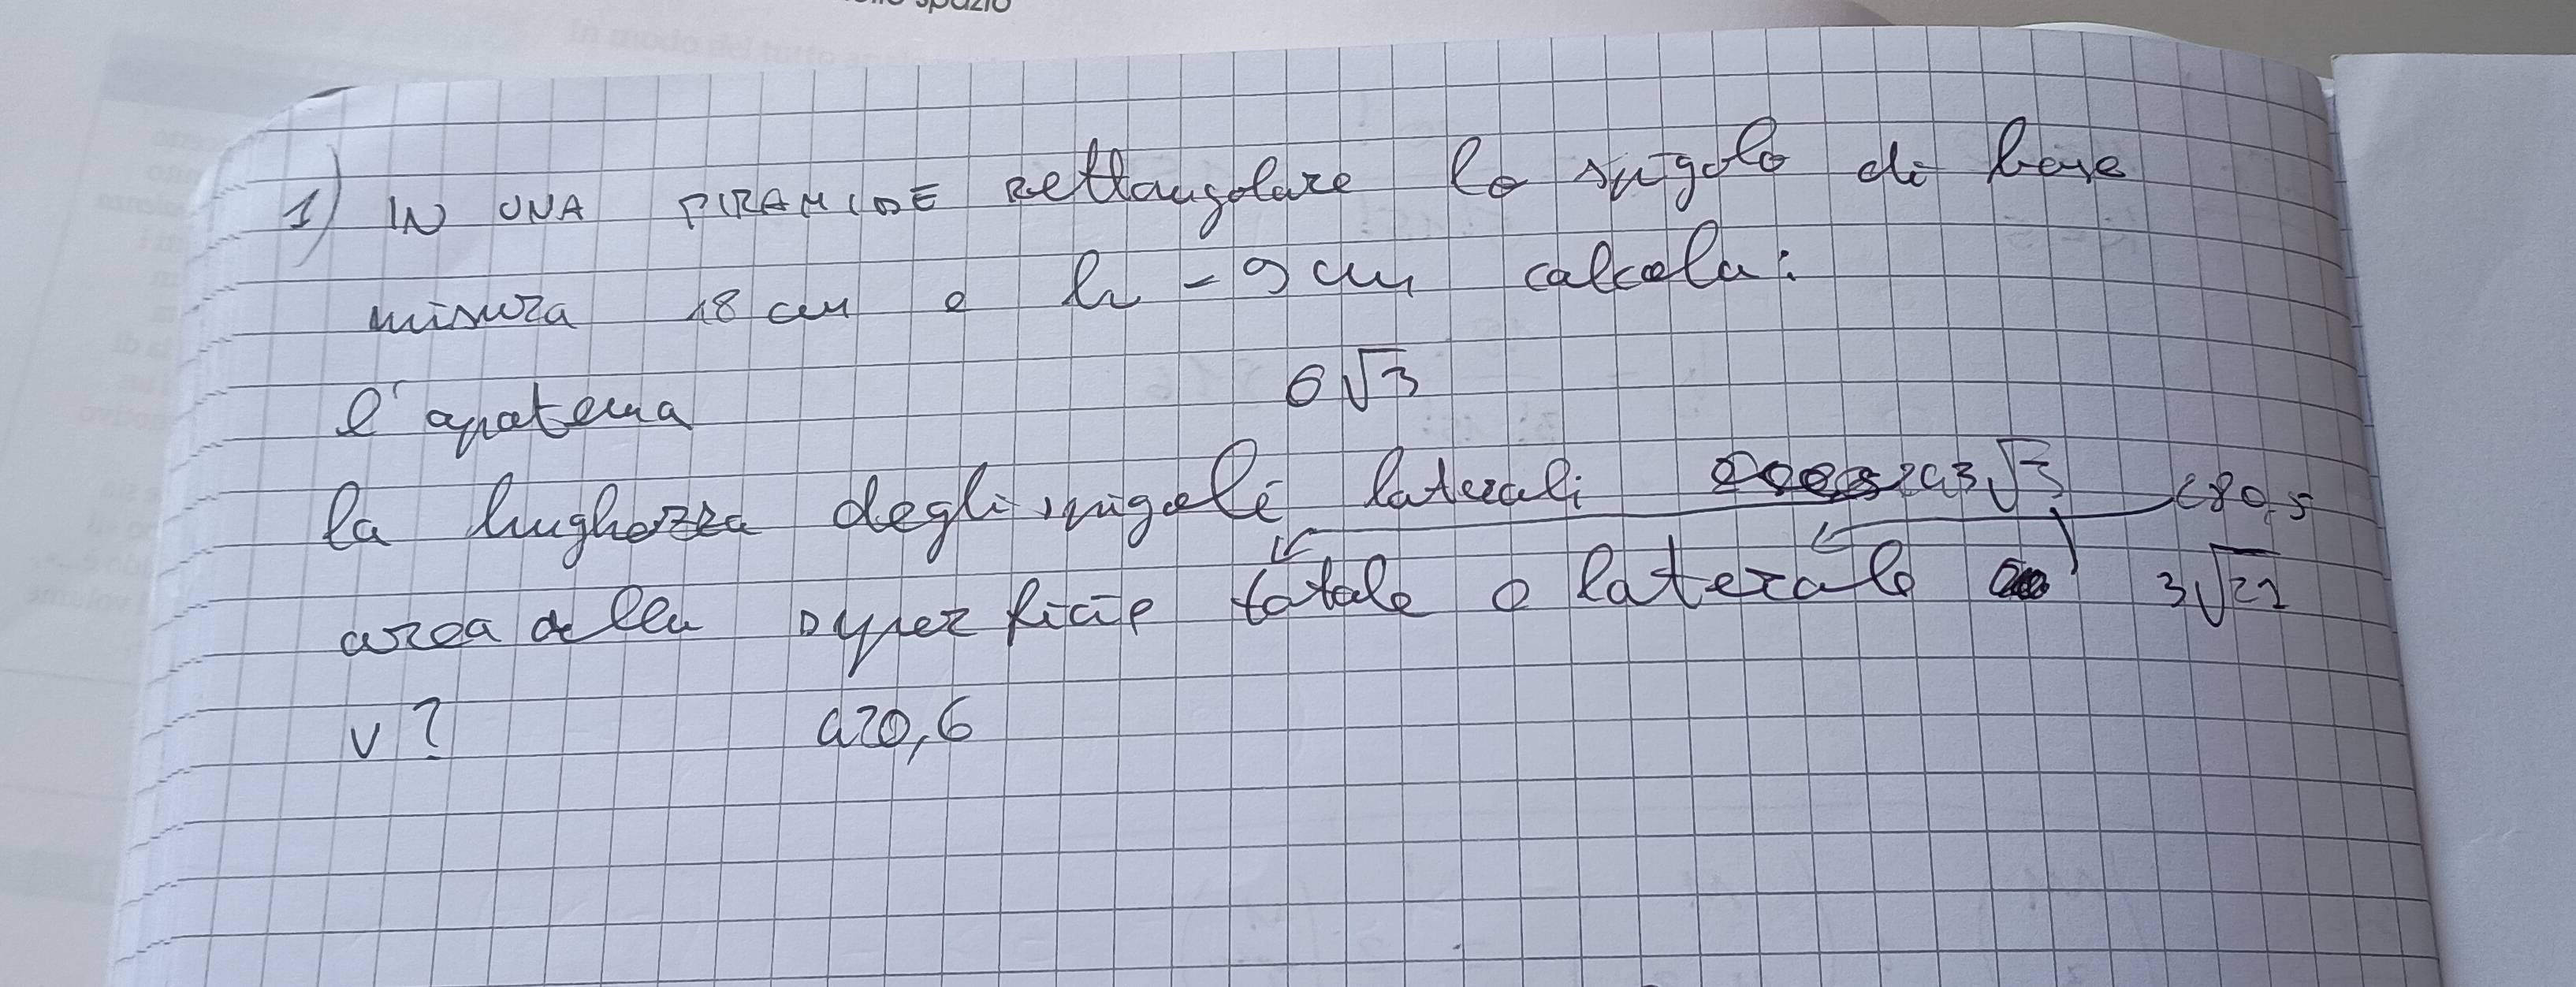 spazio
In modo del tutto
1) IN UNA PIRAMIDE rettangolare lo spigolo di base
misura 18 cm e h = 9 cm calcola:
l'apotema 6√3
la lughezza degli spigoli laterali √3 280,5
area della superficie totale e laterale 3√21
v? 420,6